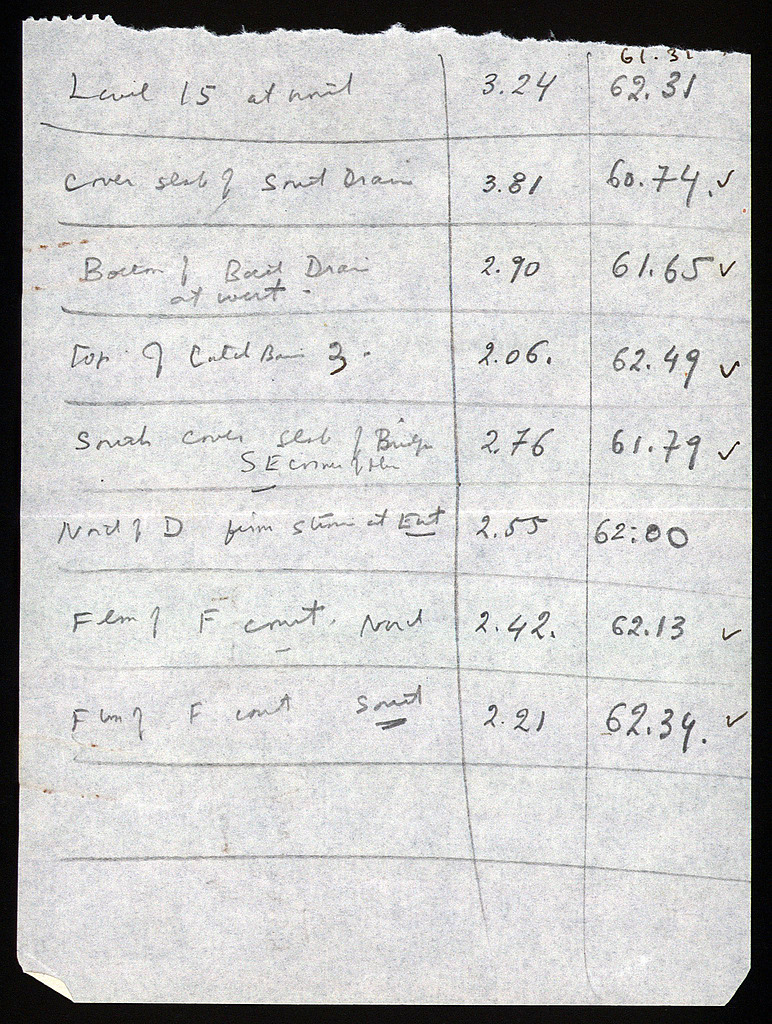 61.31
Level 15 at 3.24 62.31
Cover slab of South Drain 3.81 60.74. ✓
Bottom of Drain 2.90 61.65 ✓
at west -
Top of Catch Basin 3. 2.06. 62.49 ✓
South cover slab of Bridge 2.76 61.79 ✓
SE corner of
North of D stone at East 2.55 62:00
of F court. North 2.42. 62.13 ✓
of F court South 2.21 62.34. ✓